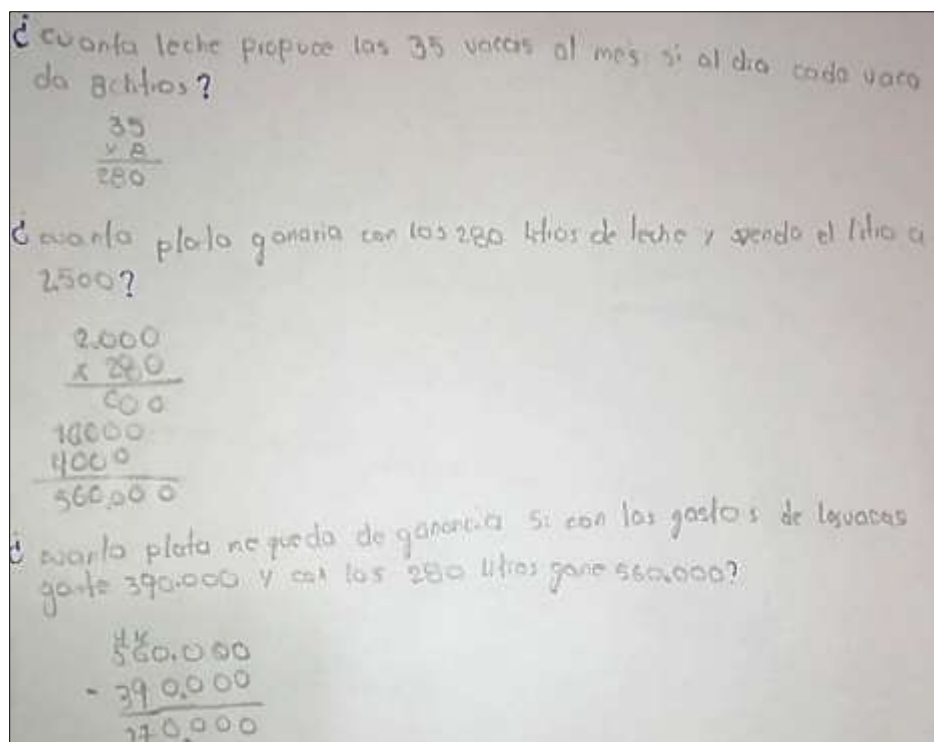 ¿cuanta leche propuce las 35 vacas al mes si al dia cada vaca
da 8 litros?
35
x 8
280
¿cuanta plata ganaria con los 280 litros de leche y vendo el litro a
2500?
2.000
x 280
000
16000
4000
560.000
¿cuanta plata me queda de ganancia si con los gastos de las vacas
gaste 390.000 y con los 280 litros gane 560.000?
560.000
- 390.000
170.000